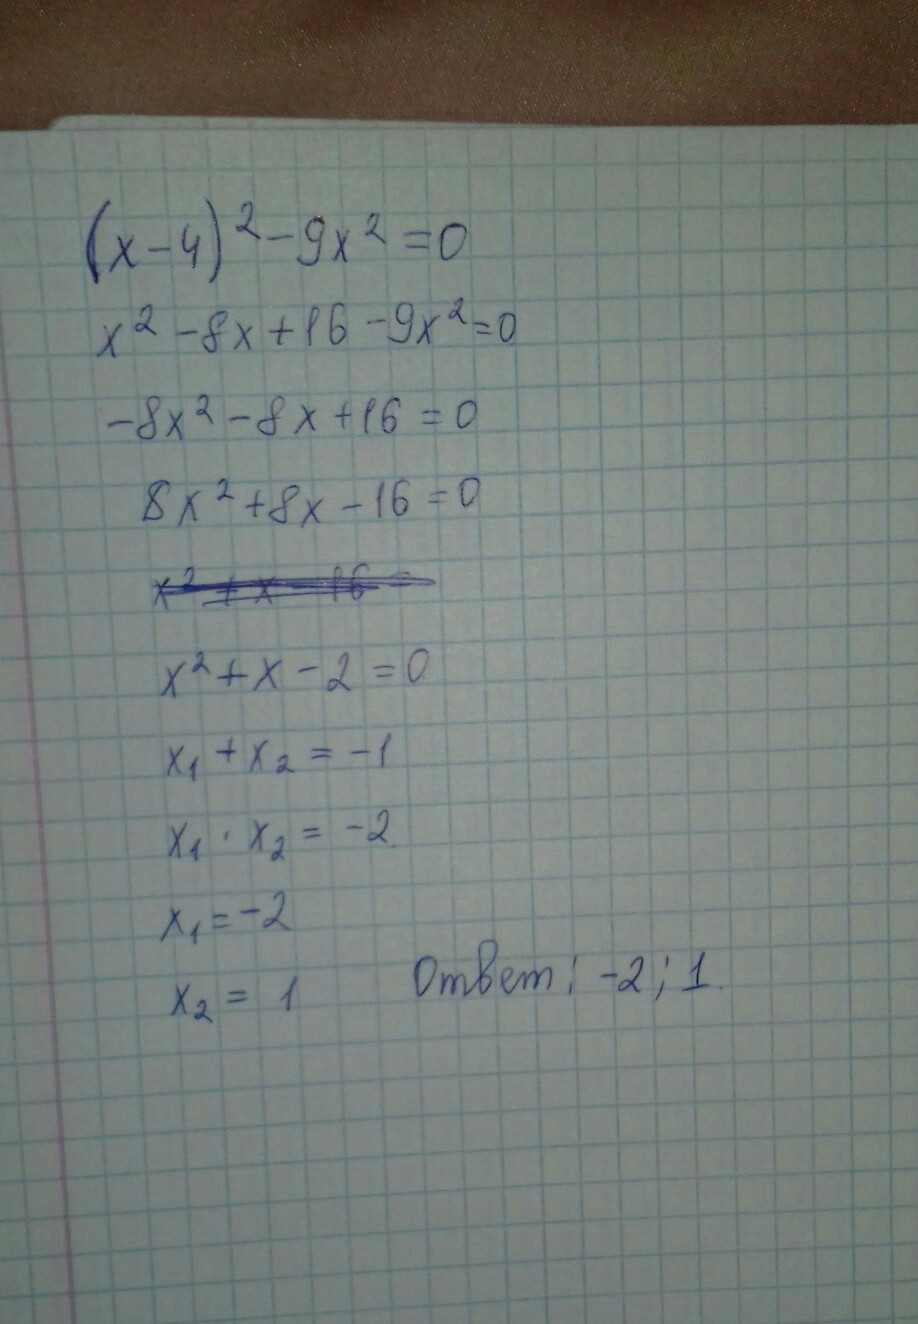 (x-4)² - 9x² = 0
x² - 8x + 16 - 9x² = 0
-8x² - 8x + 16 = 0
8x² + 8x - 16 = 0
x² + x - 16 =
x² + x - 2 = 0
x₁ + x₂ = -1
x₁ · x₂ = -2
x₁ = -2
x₂ = 1 Ответ: -2; 1.